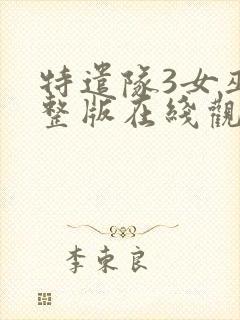 特遣隊3女巫
整版在綫觀
李東良